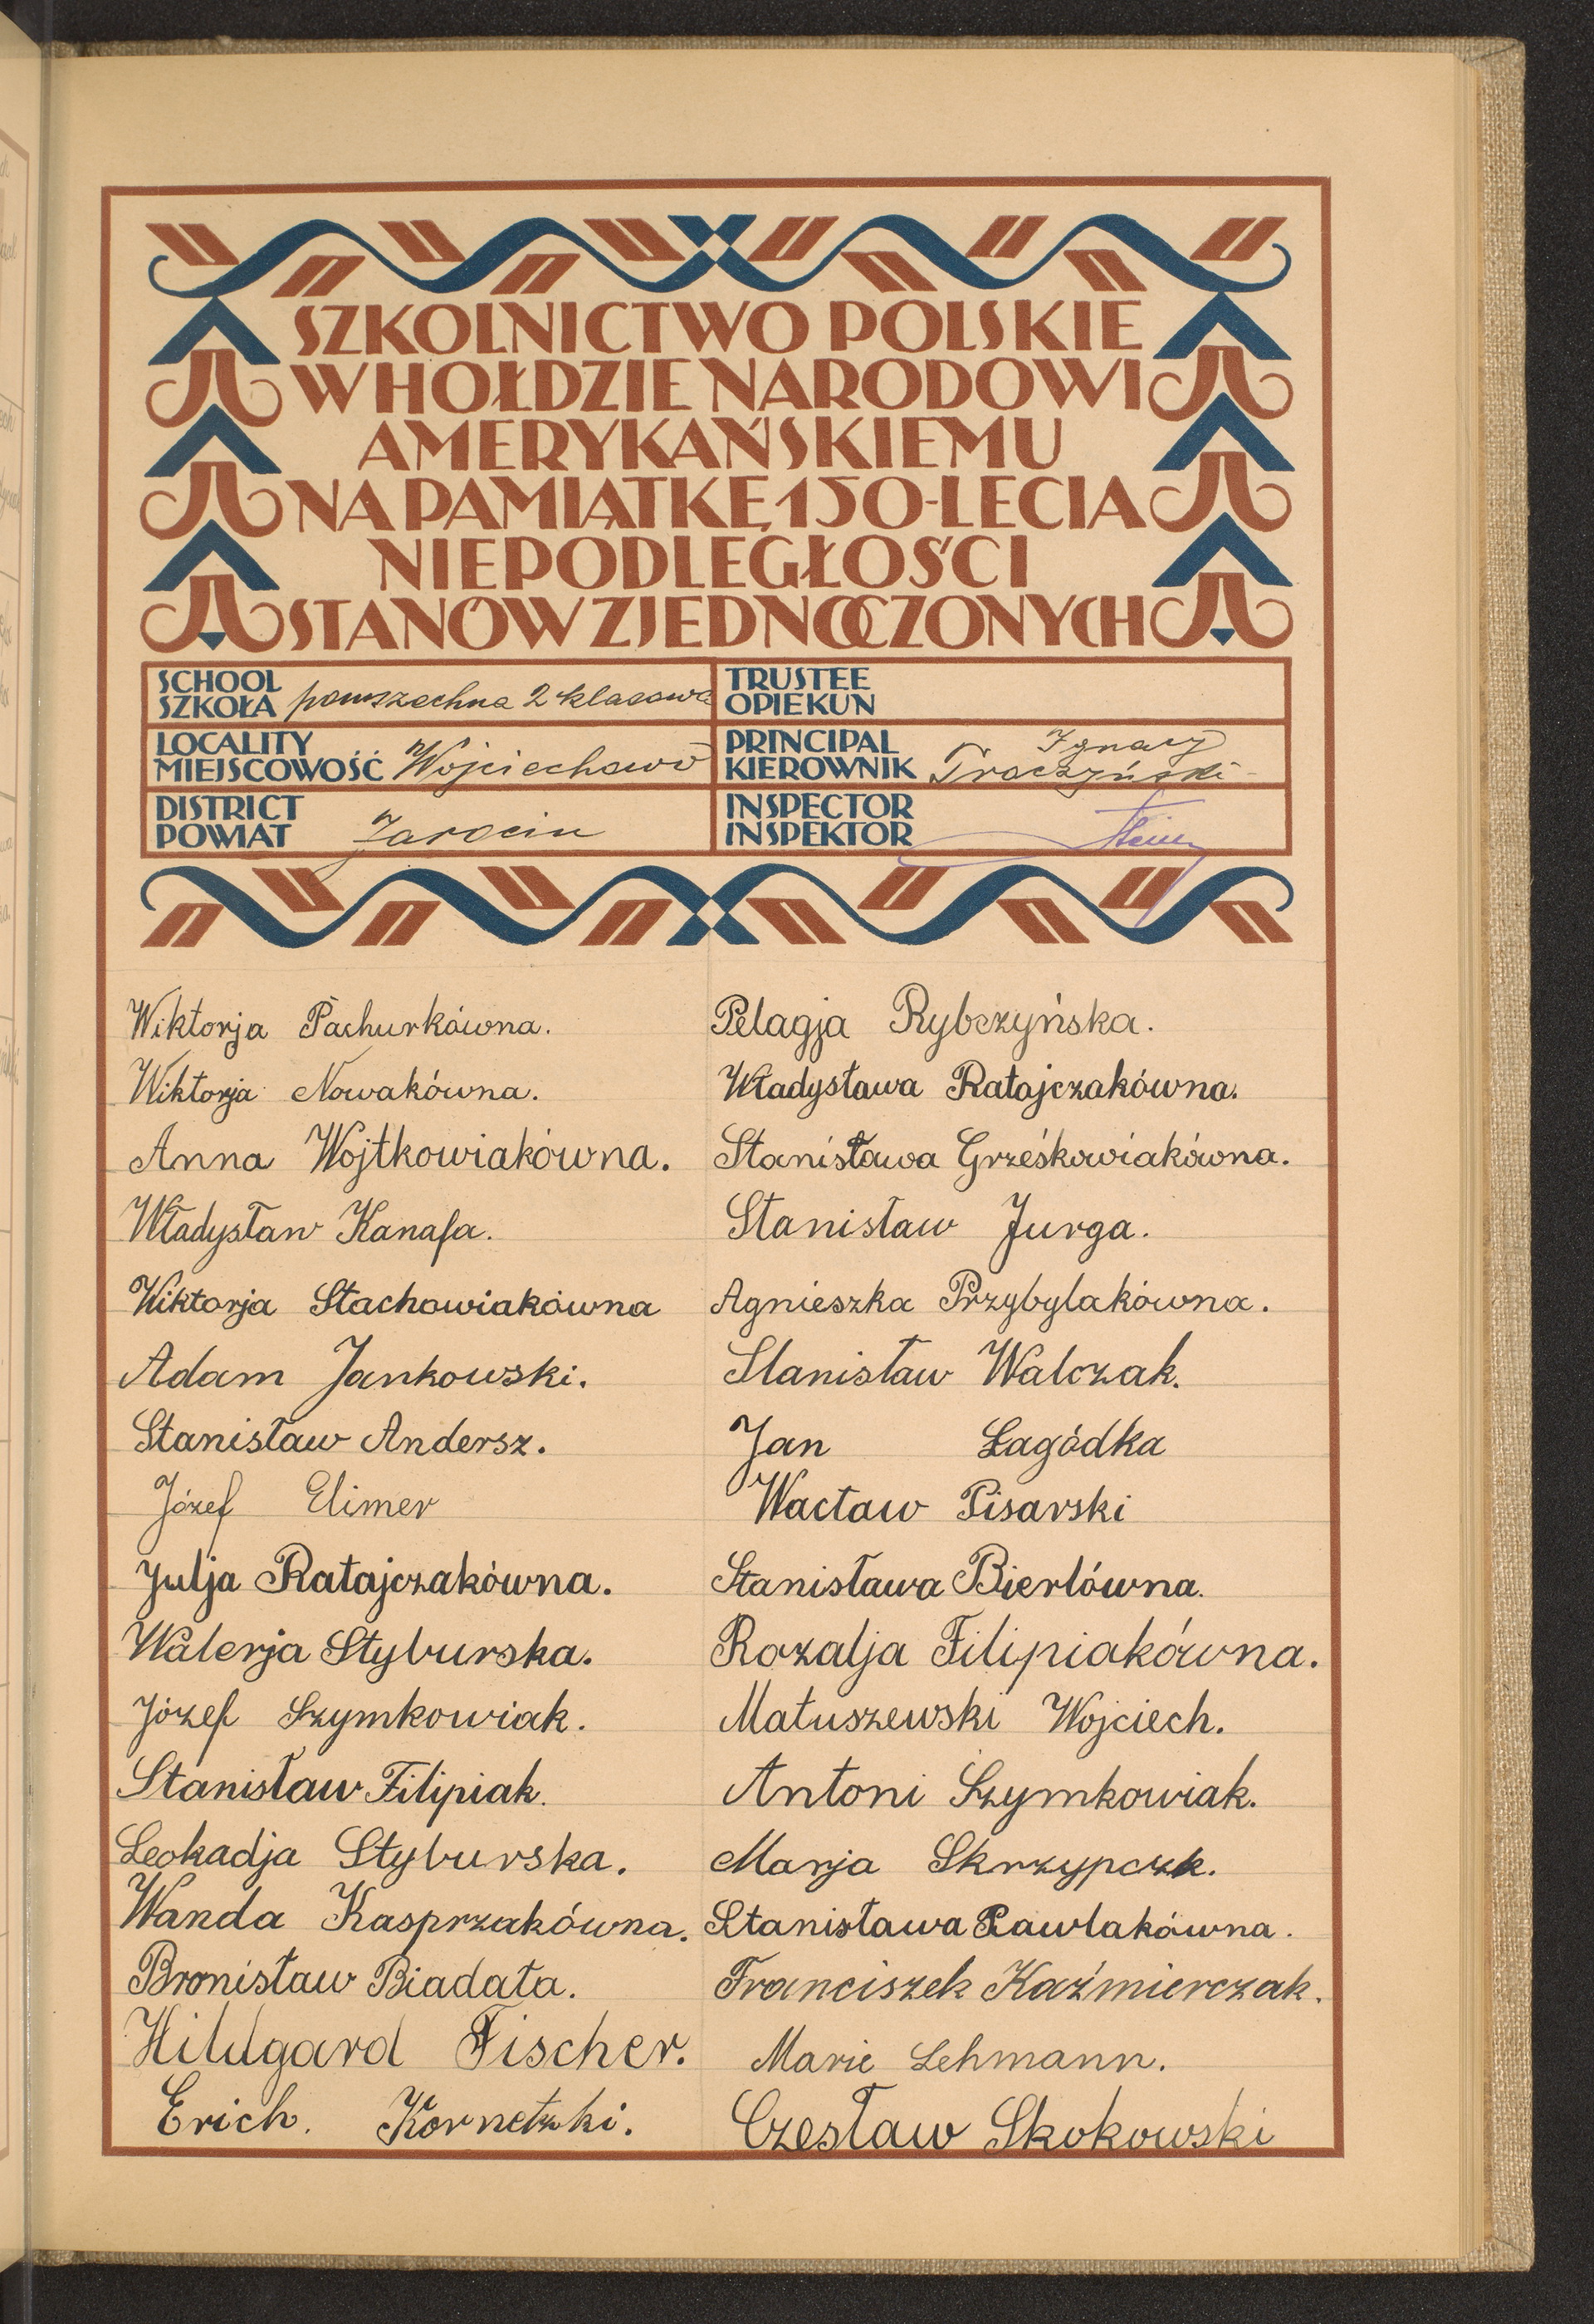 SZKOLNICTWO POLSKIE
W HOŁDZIE NARODOWI
AMERYKAŃSKIEMU
NA PAMIĄTKĘ 150-LECIA
NIEPODLEGŁOŚCI
STANÓW ZJEDNOCZONYCH
SCHOOL
SZKOŁA powszechna 2 klasowa
TRUSTEE
OPIEKUN
LOCALITY
MIEJSCOWOŚĆ Wojciechowo
PRINCIPAL Ignacy
KIEROWNIK Troczyński
DISTRICT
POWIAT Jarocin
INSPECTOR
INSPEKTOR
Wiktorja Pachurkówna.
Wiktorja Nowakówna.
Anna Wojtkowiakówna.
Władysław Kanafa.
Wiktorja Stachowiakówna
Adam Jankowski.
Stanisław Andersz.
Józef Elimer
Julja Ratajczakówna.
Walerja Styburska.
Józef Szymkowiak.
Stanisław Filipiak.
Leokadja Styburska.
Wanda Kasprzakówna.
Bronisław Biadała.
Hildgard Fischer.
Erich. Kornetzki.
Pelagja Rybczyńska.
Władysława Ratajczakówna.
Stanisława Grześkowiakówna.
Stanisław Jurga.
Agnieszka Przybylakówna.
Stanisław Walczak.
Jan Łagódka
Wacław Pisarski
Stanisława Bierłówna.
Rozalja Filipiakówna.
Matuszewski Wojciech.
Antoni Szymkowiak.
Marja Skrzypczk.
Stanisława Pawlakówna.
Franciszek Kaźmierczak.
Marie Lehmann.
Czesław Skokowski